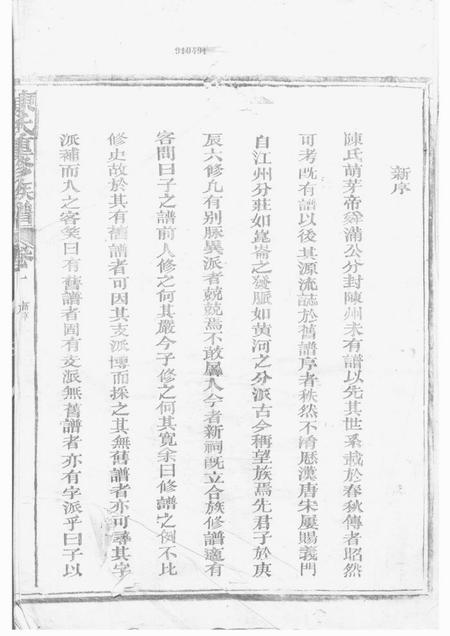 910491
新序
陳氏萌芽帝舜滿公分封陳州未有譜以先其世系載於春秋傳者昭然
可考既有譜以後其源流誌於舊譜序者秩然不淆歷漢唐宋屢賜義門
自江州分莊如崑崙之發脈如黃河之分派古今稱望族焉先君子於庚
辰六修凡有别脈異派者兢兢焉不敢羼入今者新祠既立合族修譜適有
客問曰子之譜前人修之何其嚴今子修之何其寬余曰修譜之例不比
修史故於其有舊譜者可因其支派博而採之其無舊譜者亦可尋其字
派補而入之客笑曰有舊譜者固有支派無舊譜者亦有字派乎曰子以
陳氏重修族譜
卷一